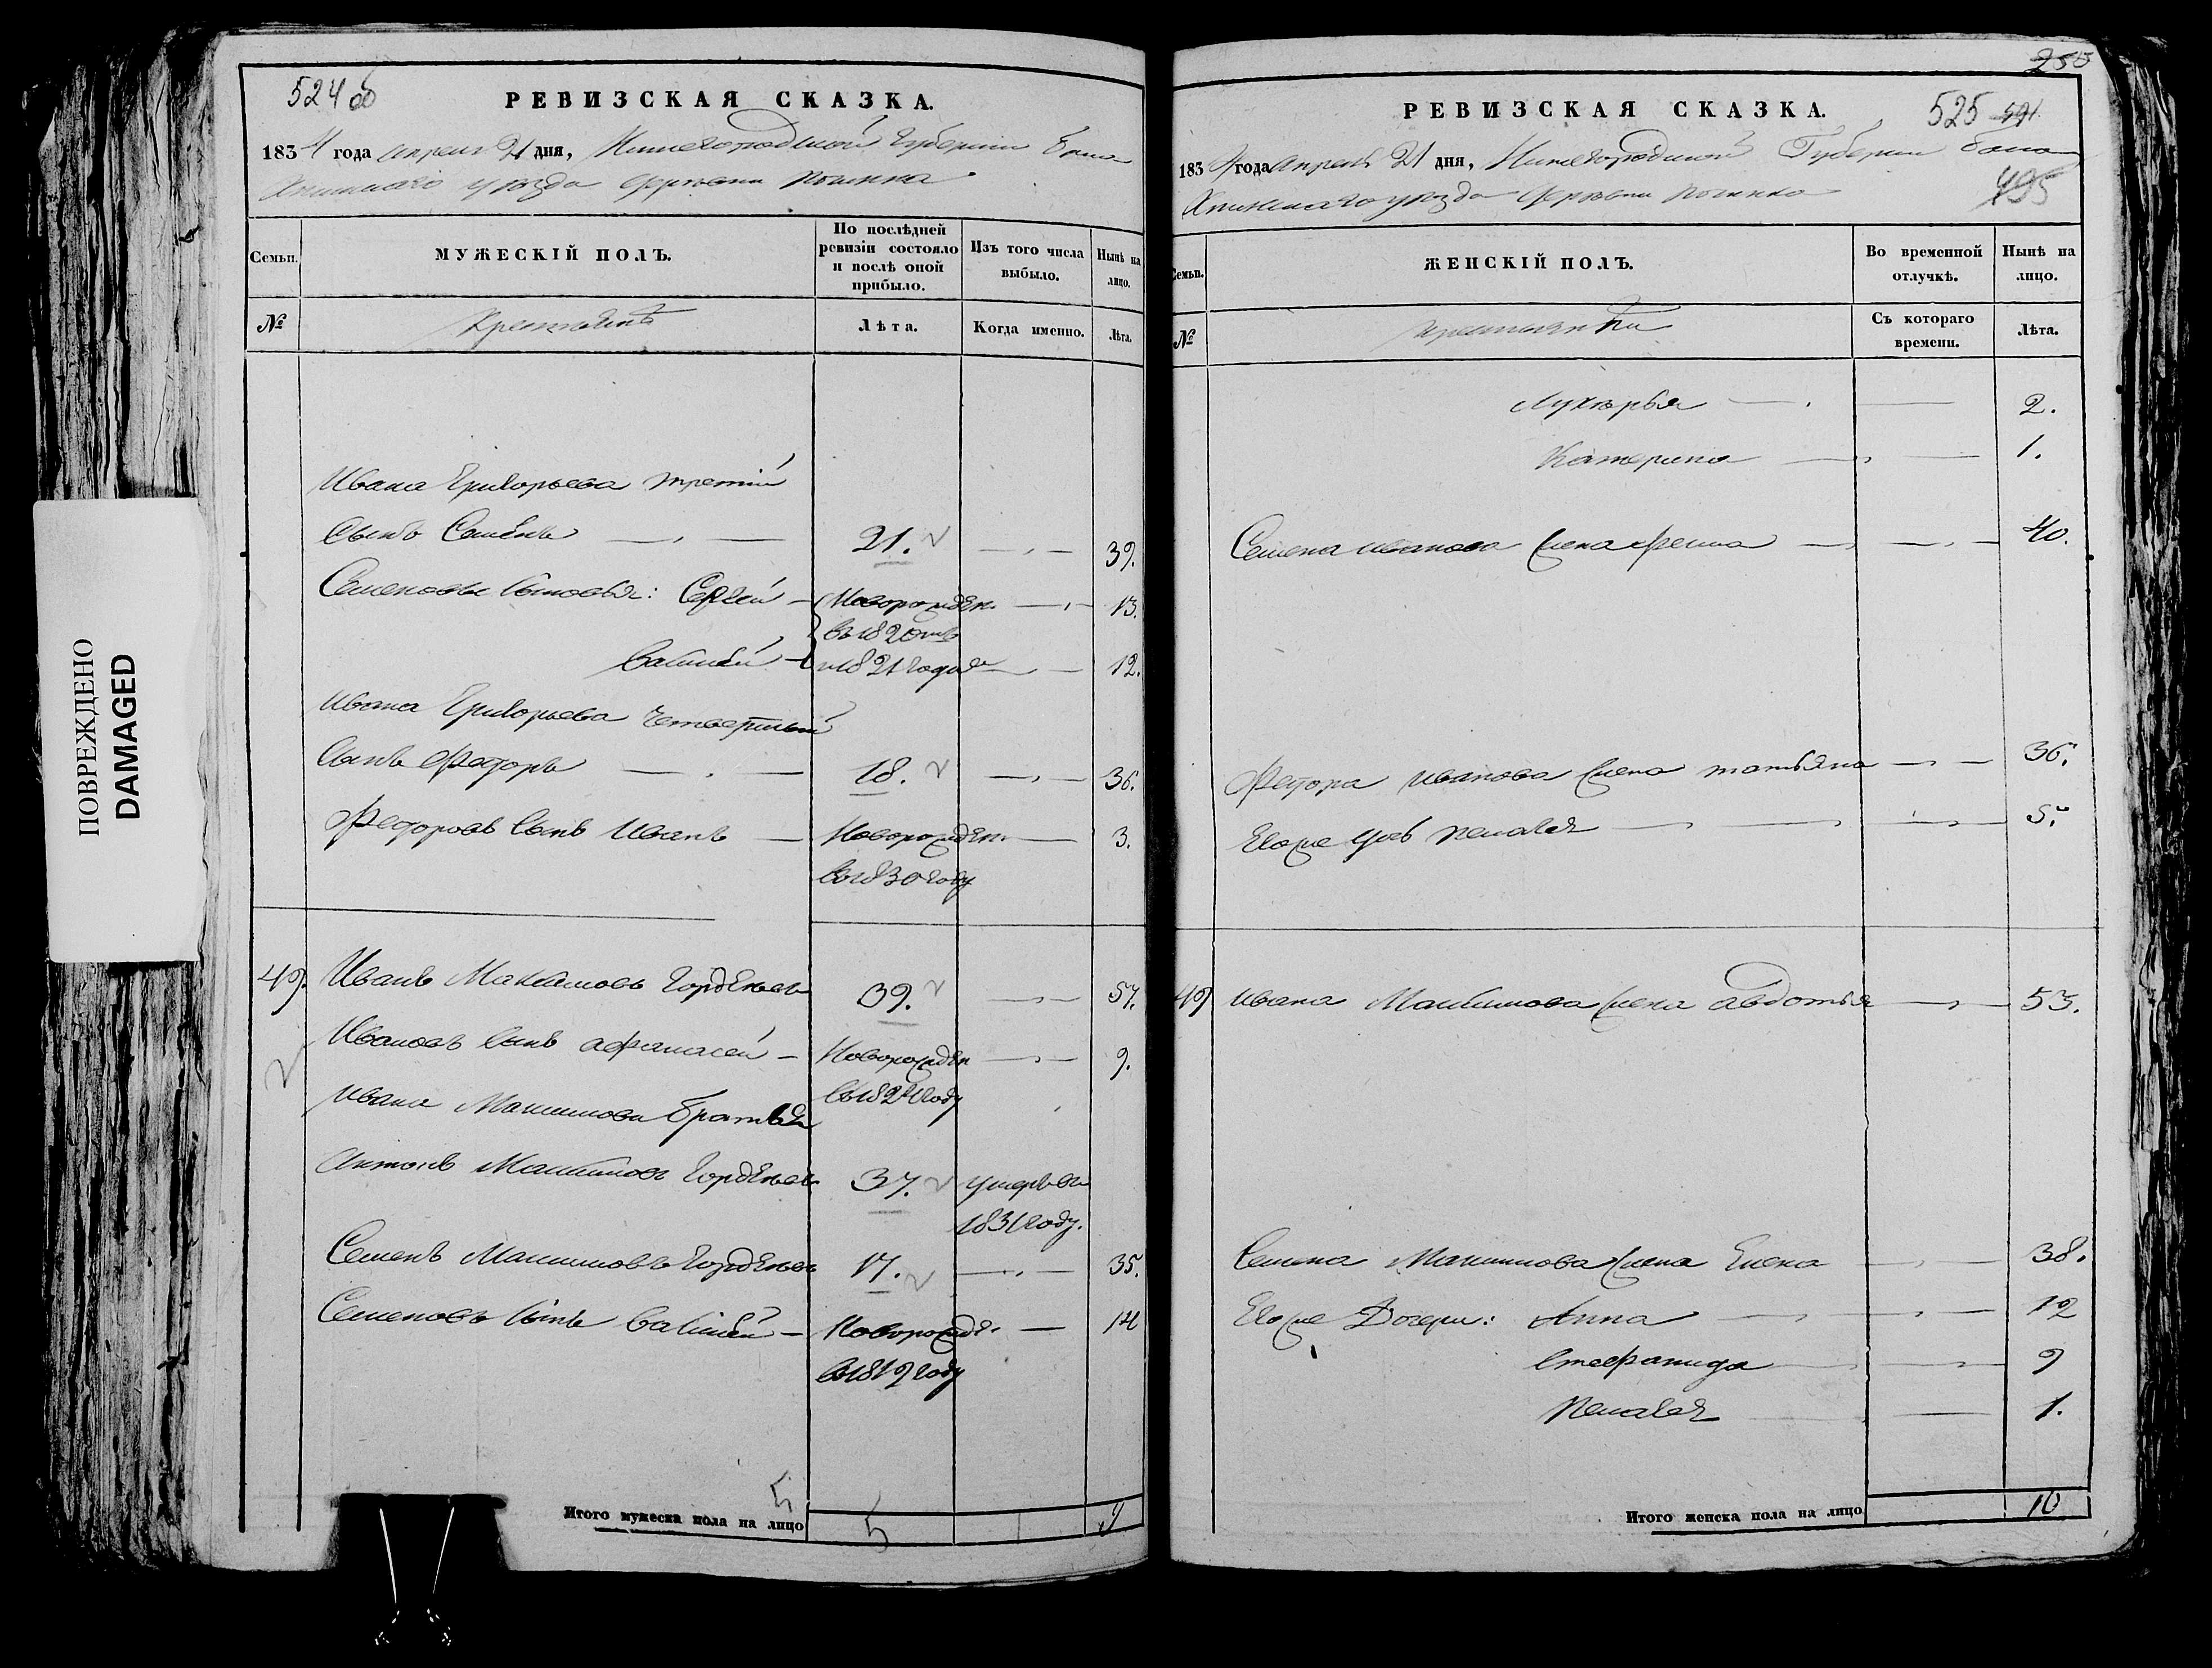 ПОВРЕЖДЕНО
DAMAGED
524 об
РЕВИЗСКАЯ СКАЗКА.
1834 года апреля 21 дня, Нижегородской Губернии Бала
Хнинскаго уезда деревни
Семьи.
МУЖЕСКІЙ ПОЛЪ.
По послѣдней ревизіи состояло и послѣ оной прибыло.
Изъ того числа выбыло.
Нынѣ на лицо.
№
Крестьянъ
Лѣта.
Когда именно.
Лѣта.
Ивана Григорьева третій
сынъ Семенъ 21. 39.
Семеновы сыновья: Сергей Новорожден. 13.
въ 1820мъ
Василей и 1821 годах 12.
Ивана Григорьева четвертый
сынъ Федоръ 18. 36.
Федоровъ сынъ Иванъ Новорожден. 3.
въ 1830 году
49. Иванъ Максимовъ Гордеевъ 39. 57.
Ивановъ сынъ афанасей Новорожден 9.
въ 1824 году
Ивана Максимова братья
Антонъ Максимовъ Гордеевъ 37. умеръ въ
1831 году.
Семенъ Максимовъ Гордеевъ 17. 35.
Семеновъ сынъ Василей Новорожде. 14
въ 1819 году
5
Итого мужеска пола на лицо 5 9
250
РЕВИЗСКАЯ СКАЗКА.
525
495
1834 года апреля 21 дня, Нижегородской Губернии Бала
Хнинскаго уезда деревни
Семьи.
ЖЕНСКІЙ ПОЛЪ.
Во временной отлучкѣ.
Нынѣ на лицо.
№
крестьянки
Съ котораго времени.
Лѣта.
Лукерья 2.
Катерина 1.
Семена иванова жена 40.
Федора иванова жена татьяна 36.
Егоже дочь пелагея 5.
49 ивана Максимова жена авдотья 53.
Семена Максимова жена Елена 38.
Егоже Дочери: Анна 12
Стефанида 9
Пелагея 1.
Итого женска пола на лицо 10